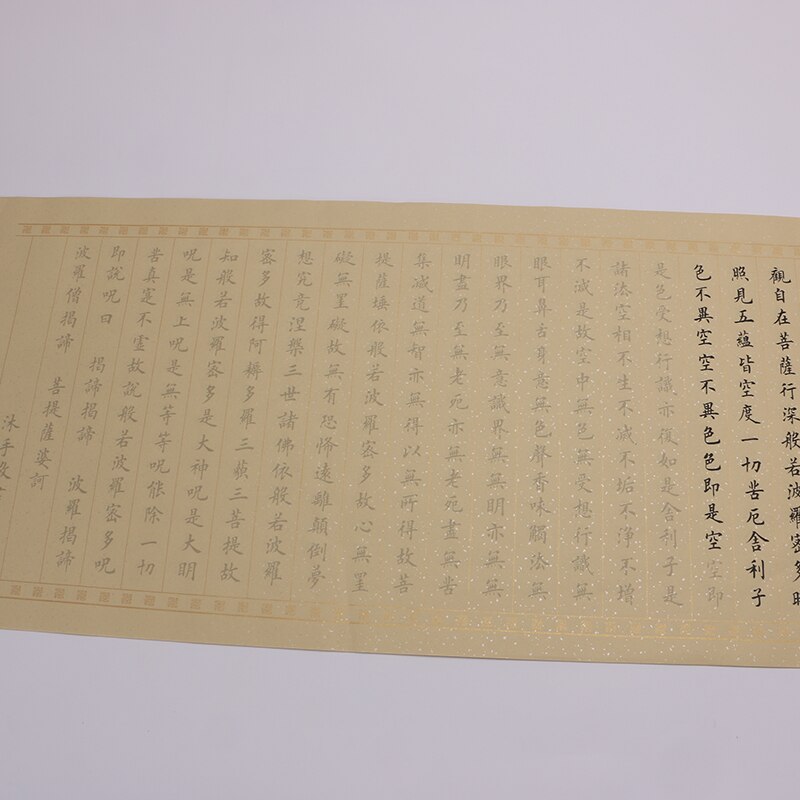 觀自在菩薩行深般若波羅密多時
照見五蘊皆空度一切苦厄舍利子
色不異空空不異色色即是空空即
是色受想行識亦復如是舍利子是
諸法空相不生不滅不垢不淨不增
不減是故空中無色無受想行識無
眼耳鼻舌身意無色聲香味觸法無
眼界乃至無意識界無無明亦無無
明盡乃至無老死亦無老死盡無苦
集滅道無智亦無得以無所得故菩
提薩埵依般若波羅密多故心無罣
礙無罣礙故無有恐怖遠離顛倒夢
想究竟涅槃三世諸佛依般若波羅
密多故得阿耨多羅三藐三菩提故
知般若波羅密多是大神呪是大明
呪是無上呪是無等等呪能除一切
苦真實不虛故說般若波羅密多呪
即說呪曰 揭諦揭諦 波羅揭諦
波羅僧揭諦 菩提薩婆訶
沐手敬